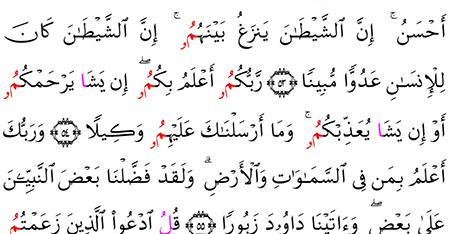 أَحْسَنُ ۚ إِنَّ ٱلشَّيْطَٰنَ يَنزَغُ بَيْنَهُمُۥ ۚ إِنَّ ٱلشَّيْطَٰنَ كَانَ
لِلْإِنسَٰنِ عَدُوًّا مُّبِينًا ۝٥٣ رَّبُّكُمُۥ أَعْلَمُ بِكُمُۥ ۖ إِن يَشَا يَرْحَمْكُمُۥ
أَوْ إِن يَشَا يُعَذِّبْكُمُۥ ۚ وَمَا أَرْسَلْنَاكَ عَلَيْهِمُۥ وَكِيلًا ۝٥٤ وَرَبُّكَ
أَعْلَمُ بِمَن فِي ٱلسَّمَٰوَٰتِ وَٱلْأَرْضِ ۗ وَلَقَدْ فَضَّلْنَا بَعْضَ ٱلنَّبِيِّـۧنَ
عَلَىٰ بَعْضٍ ۖ وَءَاتَيْنَا دَاوُۥدَ زَبُورًا ۝٥٥ قُلُ ٱدْعُواْ ٱلَّذِينَ زَعَمْتُمُ